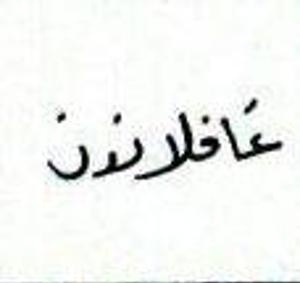 غافلانون